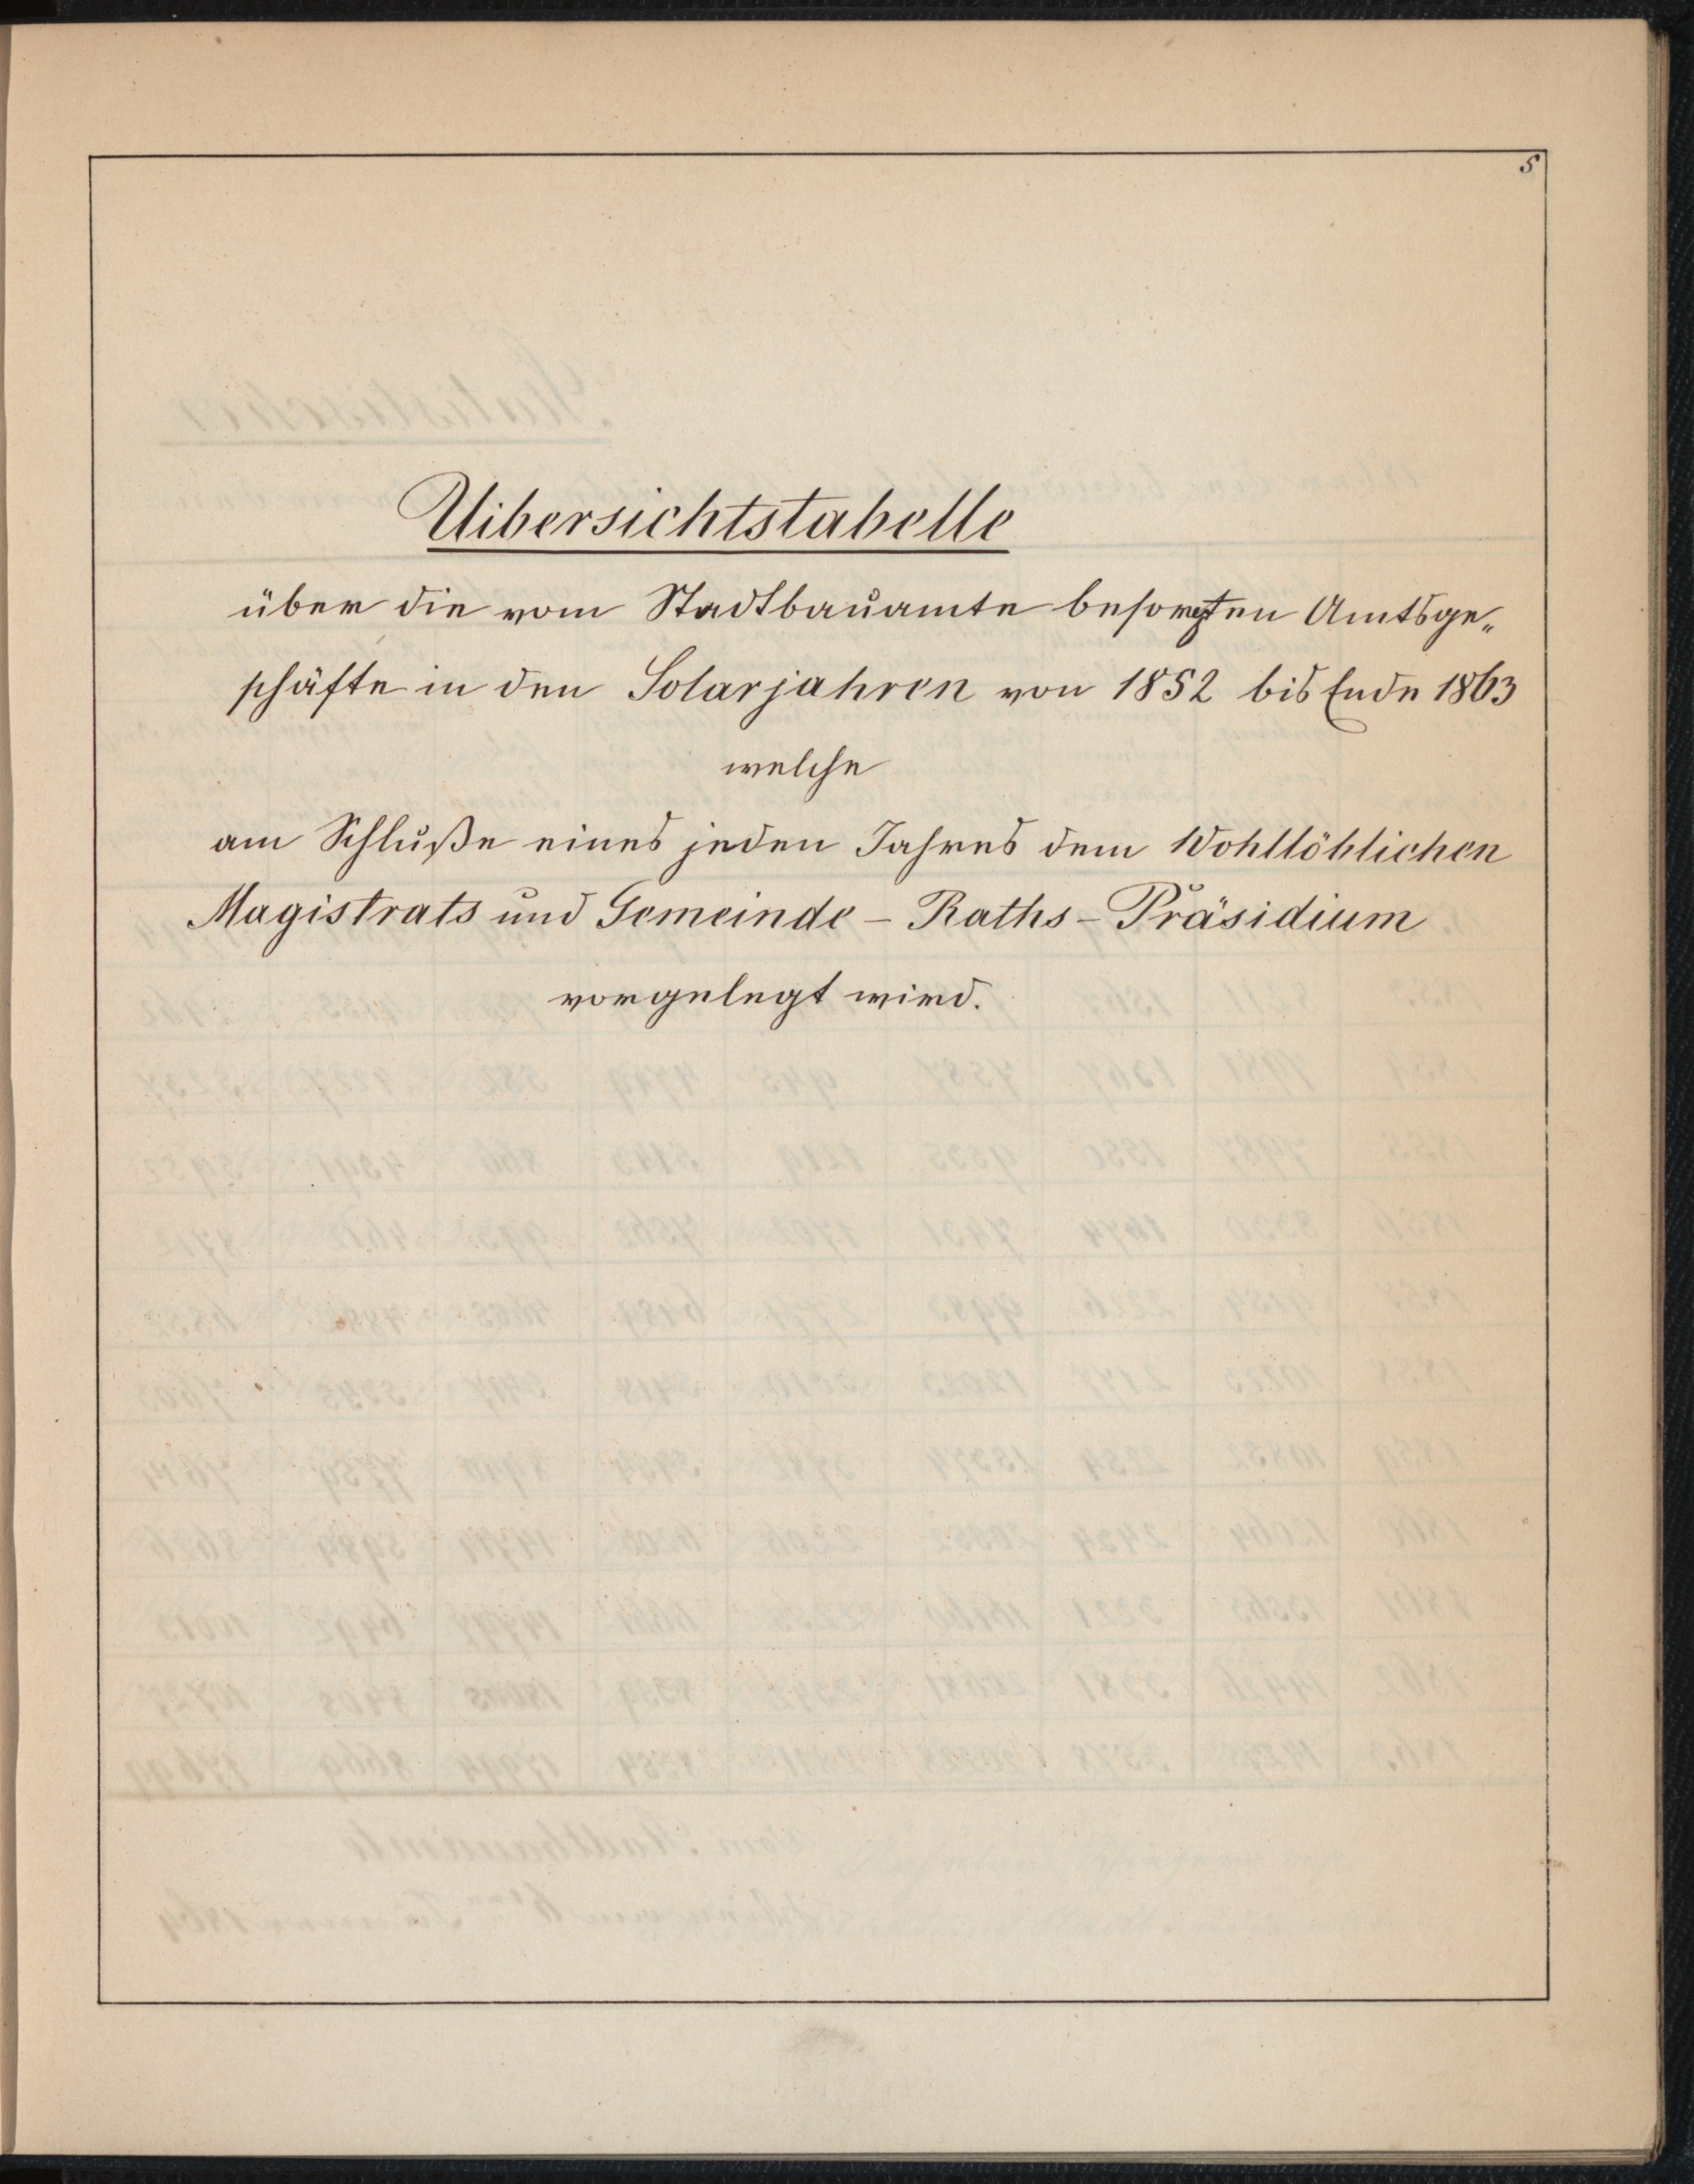 5
Uibersichtstabelle
über die vom Stadtbauamte besorgten Amtsge„
schäfte in den Solarjahren von 1852 bis Ende 1863
welche
am Schluße eines jeden Jahres dem Wohllöblichen
Magistrats und Gemeinde - Raths - Präsidium
vorgelegt wird.